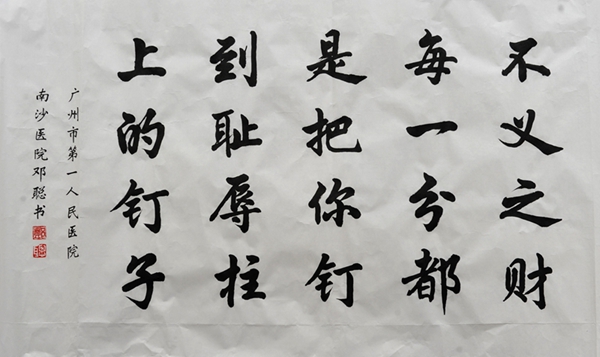 不义之财
每一分都
是把你钉
到耻辱柱
上的钉子
广州市第一人民医院
南沙医院邓聪书